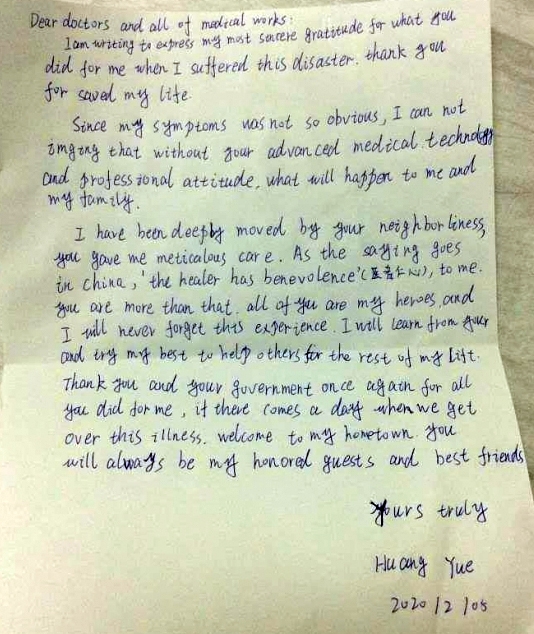 Dear doctors and all of medical works:
I am writing to express my most sincere gratitude for what you
did for me when I suffered this disaster. thank you
for saved my life.
Since my symptoms was not so obvious, I can not
imging that without your advanced medical technology
and professional attitude, what will happen to me and
my family.
I have been deeply moved by your neighborliness,
you gave me meticalous care. As the saying goes
in china, 'the healer has benevolence' (医者仁心), to me.
you are more than that. all of you are my heroes, and
I will never forget this experience. I will learn from your
and try my best to help others for the rest of my lift.
Thank you and your government once again for all
you did for me, if there comes a day when we get
over this illness. welcome to my hometown. you
will always be my honored guests and best friends
yours truly
Huang Yue
2020/2/05